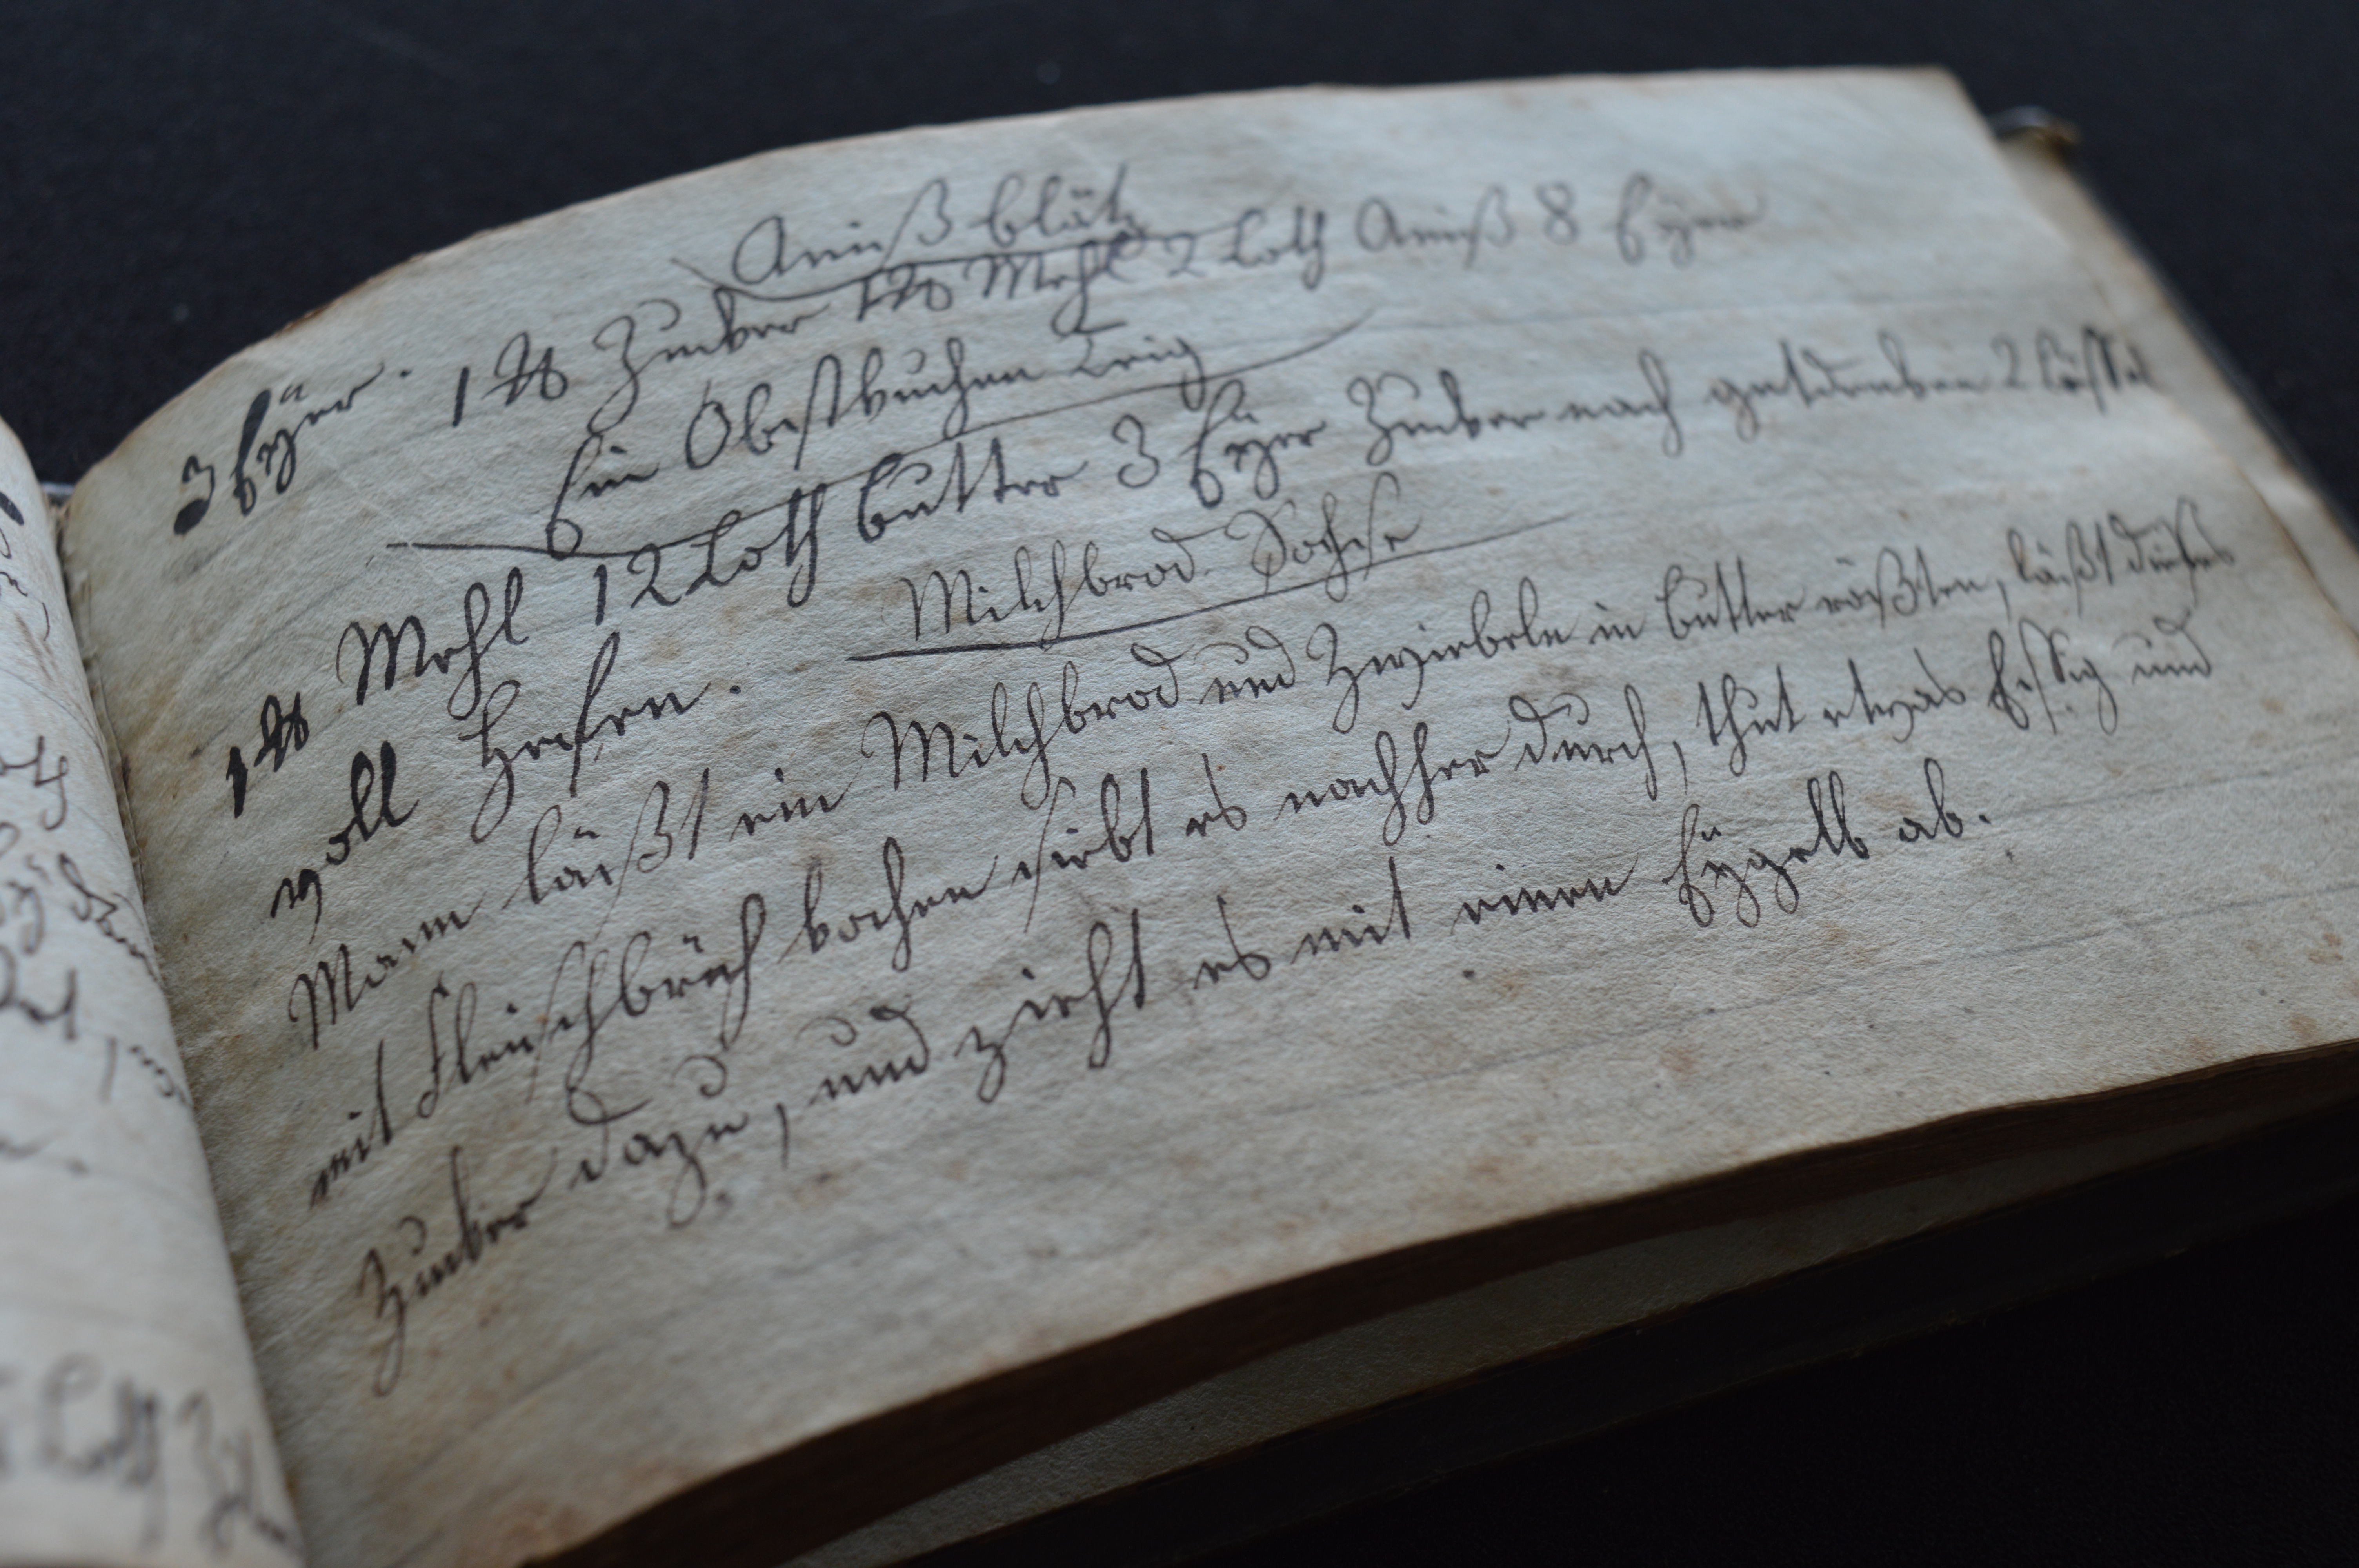 3 Eÿer.
Anißblätz
1 ℔ Zucker 1 ℔ Mehl 2 Loth Aniß 8 Eÿer
Ein Obestkuchen Teig
1 ℔ Mehl 12 Loth Butter 3 Eÿer Zucker nach gutdunken 2 Löffel
voll Hefen.
Milchbrod Sochse
Mann läßt ein Milchbrod und Zwiebeln in Butter rößten, läßt dießes
mit Fleischbrüh kochen siebt es nachher durch, thut etwas Essig und
Zucker dazu, und zieht es mit einen Eÿgelb ab.